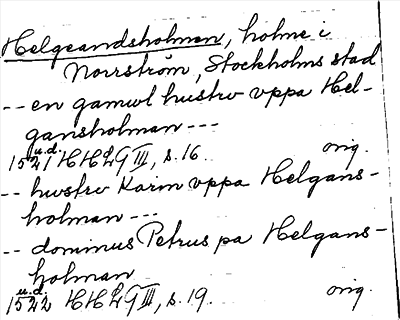 Helgeandsholmen, holme i
Norrström, Stockholms stad
-- en gamwl hustrv vppa Hel-
gansholman ---
u.d.
1521 HHLG III, s. 16. orig.
-- hwstrv Karin vppa Helgans-
holman ---
-- dominus Petrus pa Helgans-
holman
u.d.
1522 HHLG III, s. 19. orig.